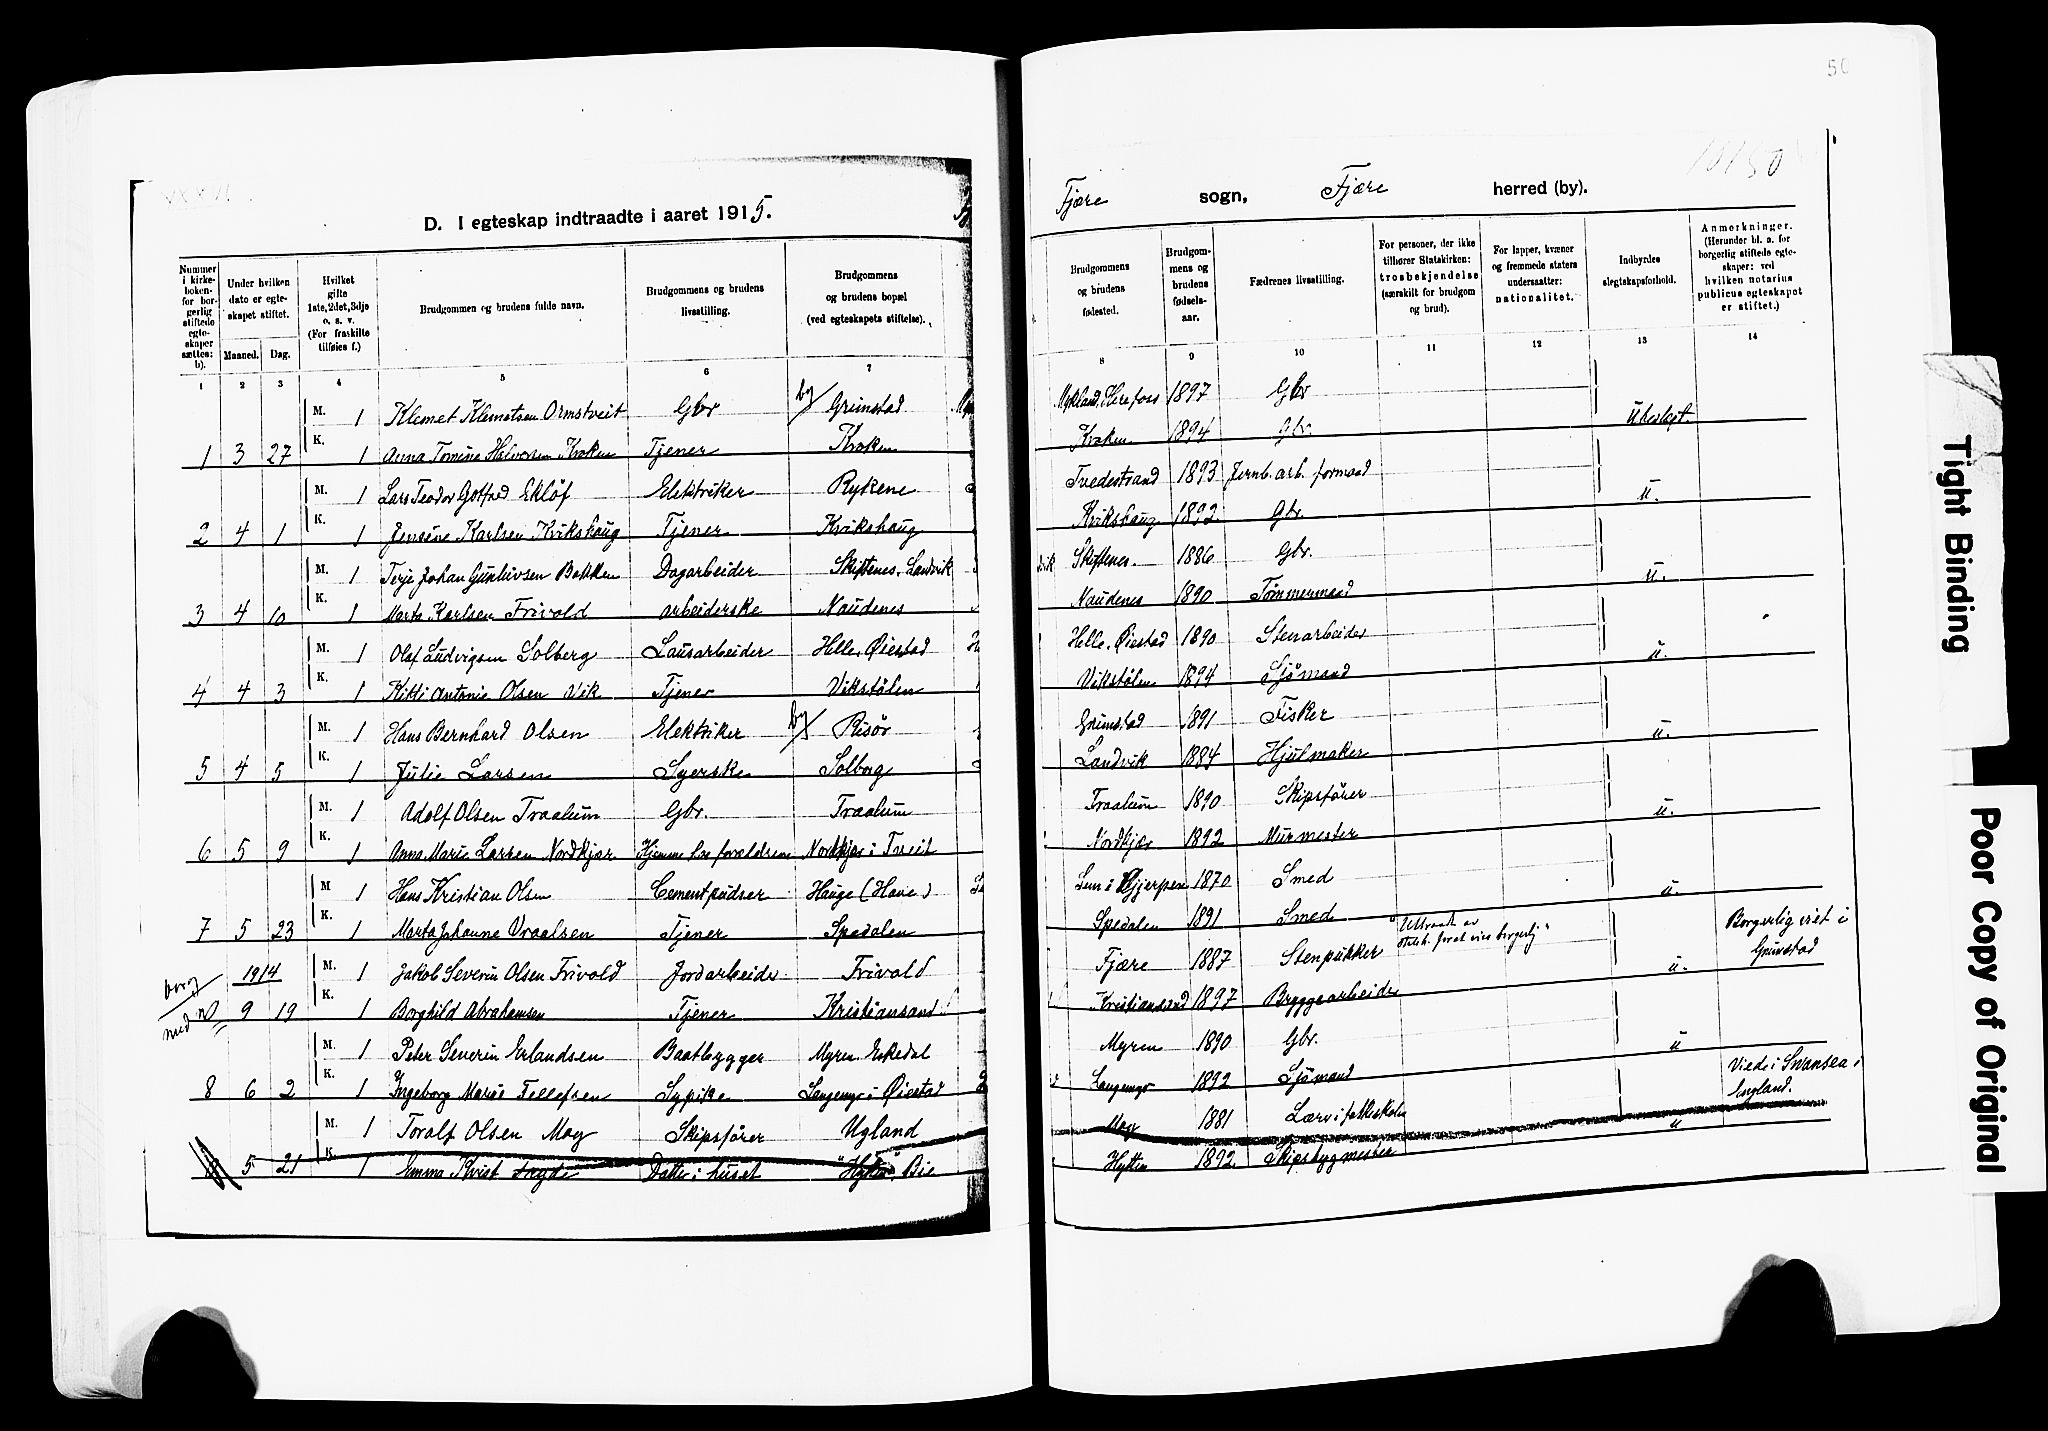 50
Tight Binding
Poor Copy of Original
D. I egteskap indtraadte i aaret 1915.
Fjære sogn, Fjære herred (by).
Nummer i kirkeboken- for borgerlig stiftede egteskaper sættes: b).
Under hvilken dato er egteskapet stiftet.
Maaned. Dag.
Hvilket gifte 1ste, 2det, 3dje o. s. v. (For fraskilte tilføies f.)
Brudgommen og brudens fulde navn.
Brudgommens og brudens livsstilling.
Brudgommens og brudens bopæl (ved egteskapets stiftelse).
Brudgommens og brudens fødested.
Brudgommens og brudens fødselsaar.
Fædrenes livsstilling.
For personer, der ikke tilhører Statskirken: trosbekjendelse (særskilt for brudgom og brud).
For lapper, kvæner og fremmede staters undersaatter: nationalitet.
Indbyrdes slegtskapsforhold.
Anmerkninger. (Herunder bl. a. for borgerlig stiftede egteskaper: ved hvilken notarius publicus egteskapet er stiftet.)
1 2 3 4 5 6 7 8 9 10 11 12 13 14
M. 1 Klemet Klemetsen Ormstveit Gbr by Grimstad Mykland, Herefoss 1897 Gbr
1 3 27 K. 1 Anna Tomine Halvorsen Kroken Tjener Kroken Kroken 1894 Gbr. Ubeslegt.
M. 1 Lars Teodor Gotfred Eklöf Elektriker Rykene Tvedestrand 1893 Jernb. arb. formand
2 4 1 K. 1 Jensine Karlsen Kvikshaug Tjener Kvikshaug Kvikshaug 1892 Gbr. u.
M. 1 Terje Johan Gunluvsen Bakken Dagarbeider Skiftenes, Landvik Skiftenes. 1886 Gbr.
3 4 10 K. 1 Marta Karlsen Frivold arbeiderske Naudenes Naudenes 1890 Tømmermand u.
M. 1 Olaf Ludvigsen Solberg Lausarbeider Helle, Øiestad Helle, Øiestad 1890 Stenarbeider
4 4 3 K. 1 Kitti Antonie Olsen Vik Tjener Vikstølen Vikstølen 1894 Sjømand u.
M. 1 Hans Bernhard Olsen Elektriker by Risør Grimstad 1891 Fisker
5 4 5 K. 1 Julie Larsen Syerske Solborg Landvik 1884 Hjulmaker u.
M. 1 Adolf Olsen Traalum Gbr. Traalum Traalum 1890 Skipsfører
6 5 9 K. 1 Anna Marie Larsen Nordkjær Hjemme hos forældrene Nordkjær i Tveit Nordkjær 1892 Murmester u.
M 1 Hans Kristian Olsen Cementpudser Hauge (Have) i Gjerpen 1870 Smed
7 5 23 K. 1 Marta Johanne Vraalsen Tjener Spedalen Spedalen 1891 Smed u.
1914 M. 1 Jakob Severin Olsen Frivold Jordarbeider Frivold Fjære 1887 Stenpukker Borgerlig viet i Grimstad
borg
9 19 K. 1 Borghild Abrahamsen Tjener Kristiansand Kristiansand 1897 Bryggearbeider u.
M. 1 Peter Severin Erlandsen Baatbygger Myren, Eskedal Myren 1890 Gbr.
8 6 2 K. 1 Ingeborg Marie Tellefsen Sypike Langemyr i Øiestad Langemyr 1892 Sjømand u
M. 1 Toralf Olsen Moy Skipsfører Ugland Moy 1881 Lærer i folkeskolen Viede i Swansea i England.
5 21 K. 1 Emma Kvist Datter i huset "Hytten", Bie Hytten 1892. Skipsbygmester u